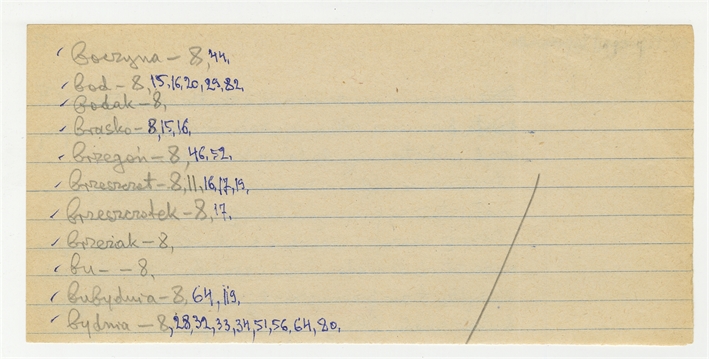 ✓ boczyna – 8, 44.
✓ bod – 8, 15, 16, 20, 29, 82.
✓ bodak – 8.
✓ brasko – 8, 15, 16.
✓ brzegoń – 8, 46, 52.
✓ brzeszczot – 8, 11, 16, 17, 19.
✓ brzeszczotek – 8, 17.
✓ brzeżak – 8,
✓ bu – – 8,
✓ bubydnia – 8, 64, 119.
✓ bydnia – 8, 28, 32, 33, 34, 51, 56, 64, 80.